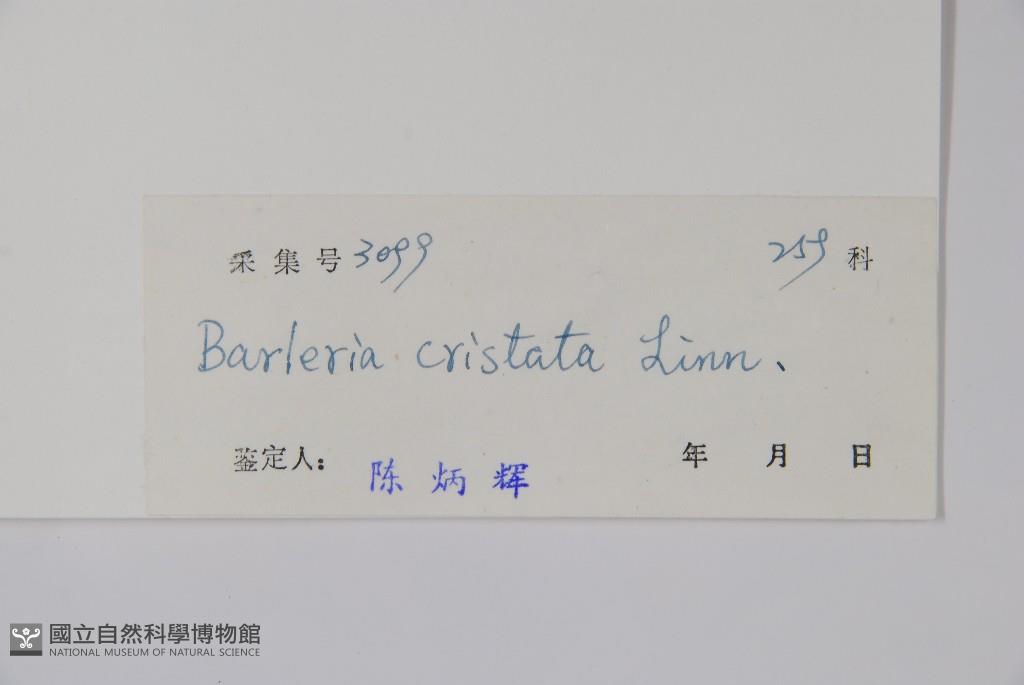 采集号 3099 259 科
Barleria cristata Linn.
鉴定人： 陈炳辉 年 月 日
國立自然科學博物館
NATIONAL MUSEUM OF NATURAL SCIENCE